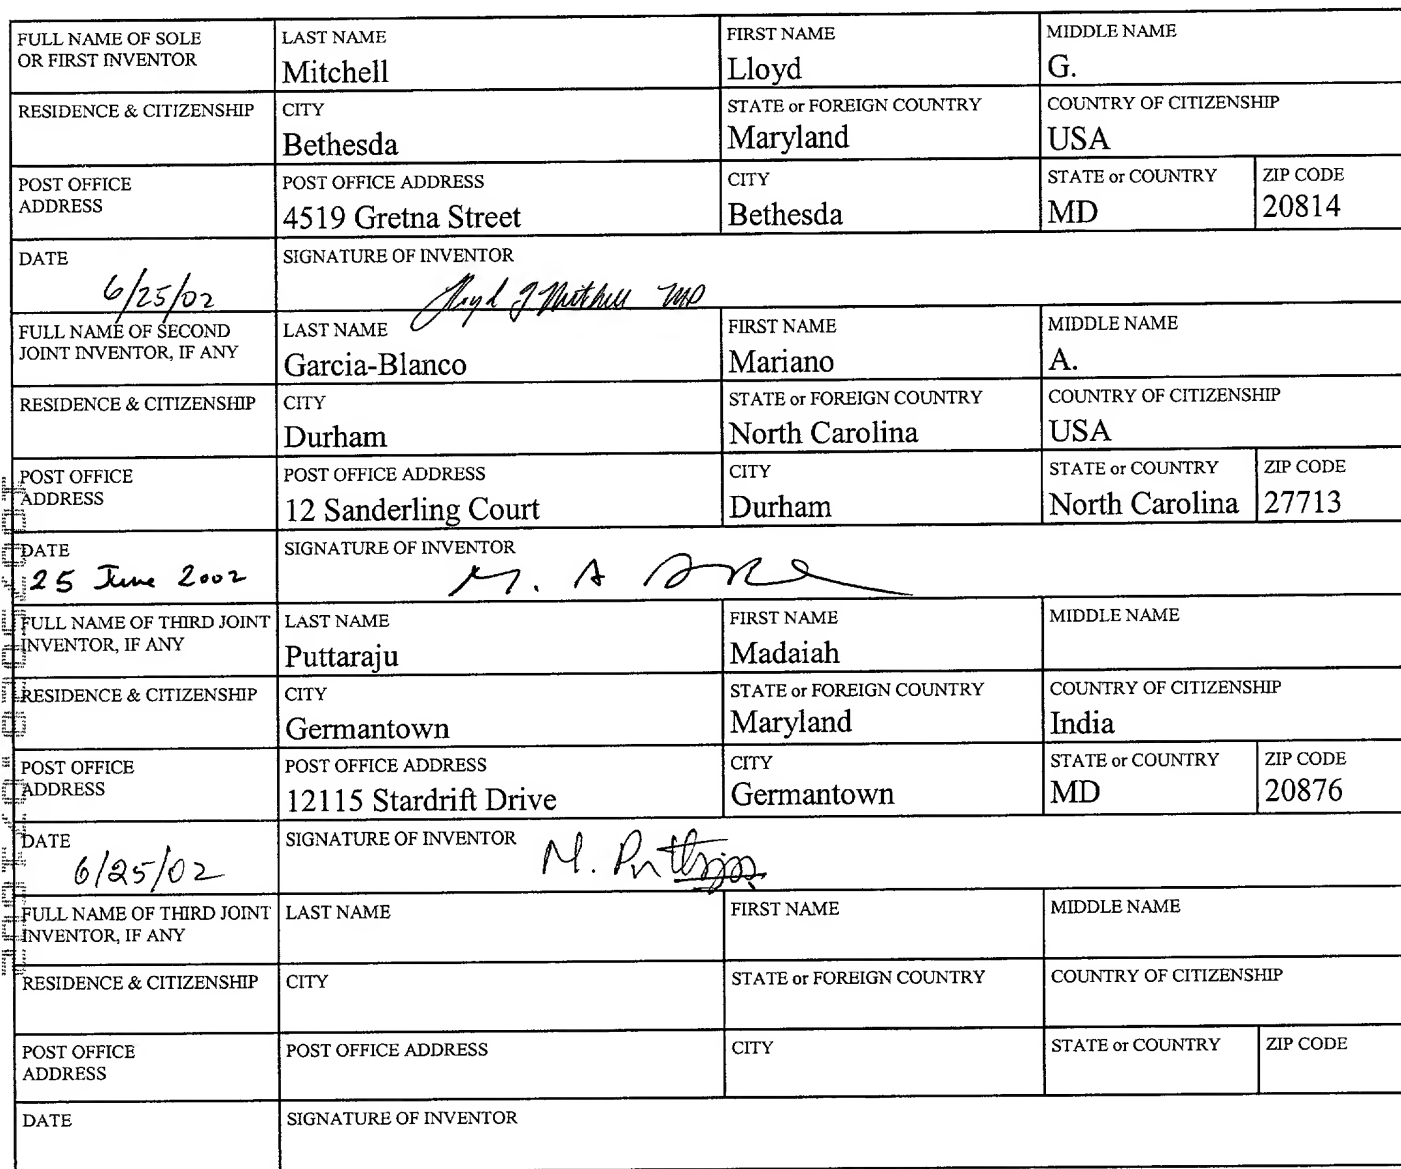 FULL NAME OF SOLE
OR FIRST INVENTOR
LAST NAME
Mitchell
FIRST NAME
Lloyd
MIDDLE NAME
G.
RESIDENCE & CITIZENSHIP
CITY
Bethesda
STATE or FOREIGN COUNTRY
Maryland
COUNTRY OF CITIZENSHIP
USA
POST OFFICE
ADDRESS
POST OFFICE ADDRESS
4519 Gretna Street
CITY
Bethesda
STATE or COUNTRY
MD
ZIP CODE
20814
DATE
6/25/02
SIGNATURE OF INVENTOR
Lloyd G Mitchell MD
FULL NAME OF SECOND
JOINT INVENTOR, IF ANY
LAST NAME
Garcia-Blanco
FIRST NAME
Mariano
MIDDLE NAME
A.
RESIDENCE & CITIZENSHIP
CITY
Durham
STATE or FOREIGN COUNTRY
North Carolina
COUNTRY OF CITIZENSHIP
USA
POST OFFICE
ADDRESS
POST OFFICE ADDRESS
12 Sanderling Court
CITY
Durham
STATE or COUNTRY
North Carolina
ZIP CODE
27713
DATE
25 June 2002
SIGNATURE OF INVENTOR
M. A
FULL NAME OF THIRD JOINT
INVENTOR, IF ANY
LAST NAME
Puttaraju
FIRST NAME
Madaiah
MIDDLE NAME
RESIDENCE & CITIZENSHIP
CITY
Germantown
STATE or FOREIGN COUNTRY
Maryland
COUNTRY OF CITIZENSHIP
India
POST OFFICE
ADDRESS
POST OFFICE ADDRESS
12115 Stardrift Drive
CITY
Germantown
STATE or COUNTRY
MD
ZIP CODE
20876
DATE
6/25/02
SIGNATURE OF INVENTOR
M.
FULL NAME OF THIRD JOINT
INVENTOR, IF ANY
LAST NAME
FIRST NAME
MIDDLE NAME
RESIDENCE & CITIZENSHIP
CITY
STATE or FOREIGN COUNTRY
COUNTRY OF CITIZENSHIP
POST OFFICE
ADDRESS
POST OFFICE ADDRESS
CITY
STATE or COUNTRY
ZIP CODE
DATE
SIGNATURE OF INVENTOR